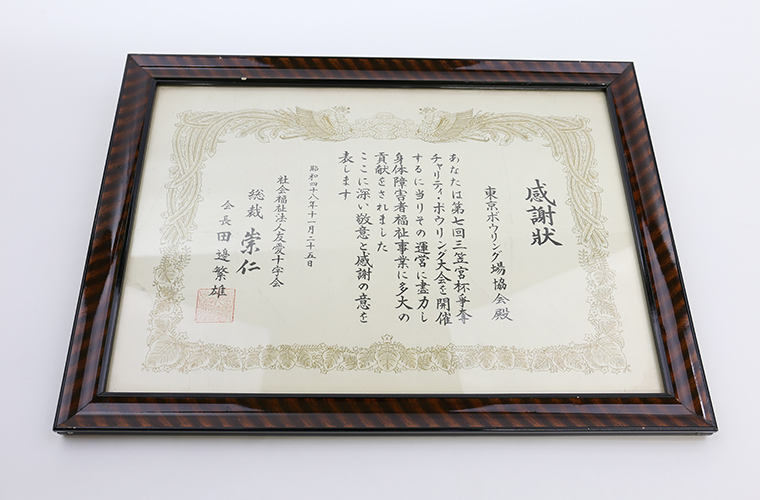 感謝状
東京ボウリング場協会殿
あなたは第七回三笠宮杯争奪
チャリティ・ボウリング大会を開催
するに当りその運営に盡力し
身体障害者福祉事業に多大の
貢献をされました
ここに深い敬意と感謝の意を
表します
昭和四十八年十一月二十五日
社会福祉法人友愛十字会
総裁 崇仁
会長 田邉繁雄